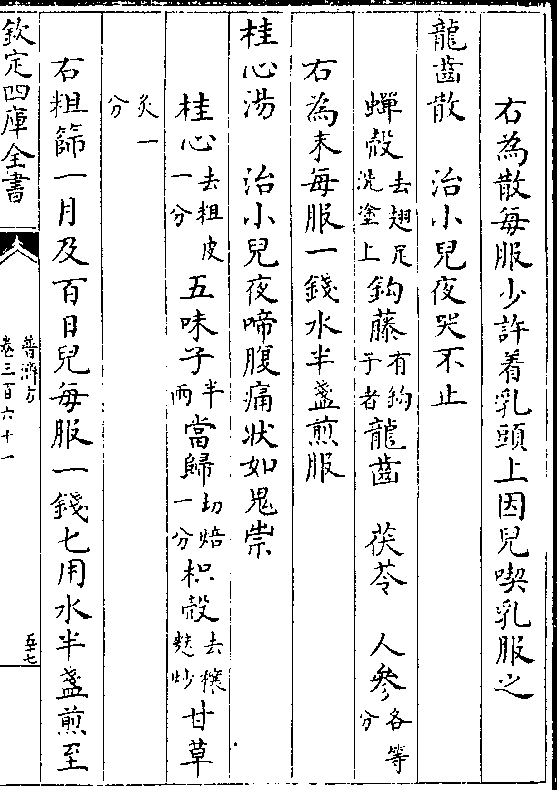 右為散每服少許着乳頭上因兒喫乳服之
龍齒散　治小兒夜哭不止
蟬殼去翅足洗塗上　鈎藤有鈎子者　龍齒　茯苓　人參各等分
右為末每服一錢水半盞煎服
桂心湯　治小兒夜啼腹痛狀如鬼祟
桂心去粗皮一分　五味子半兩　當歸切焙一分　枳殼去穰麩炒　甘草
炙一分
右粗篩一月及百日兒每服一錢匕用水半盞煎至
欽定四庫全書
普濟方
卷三百六十一
五十七